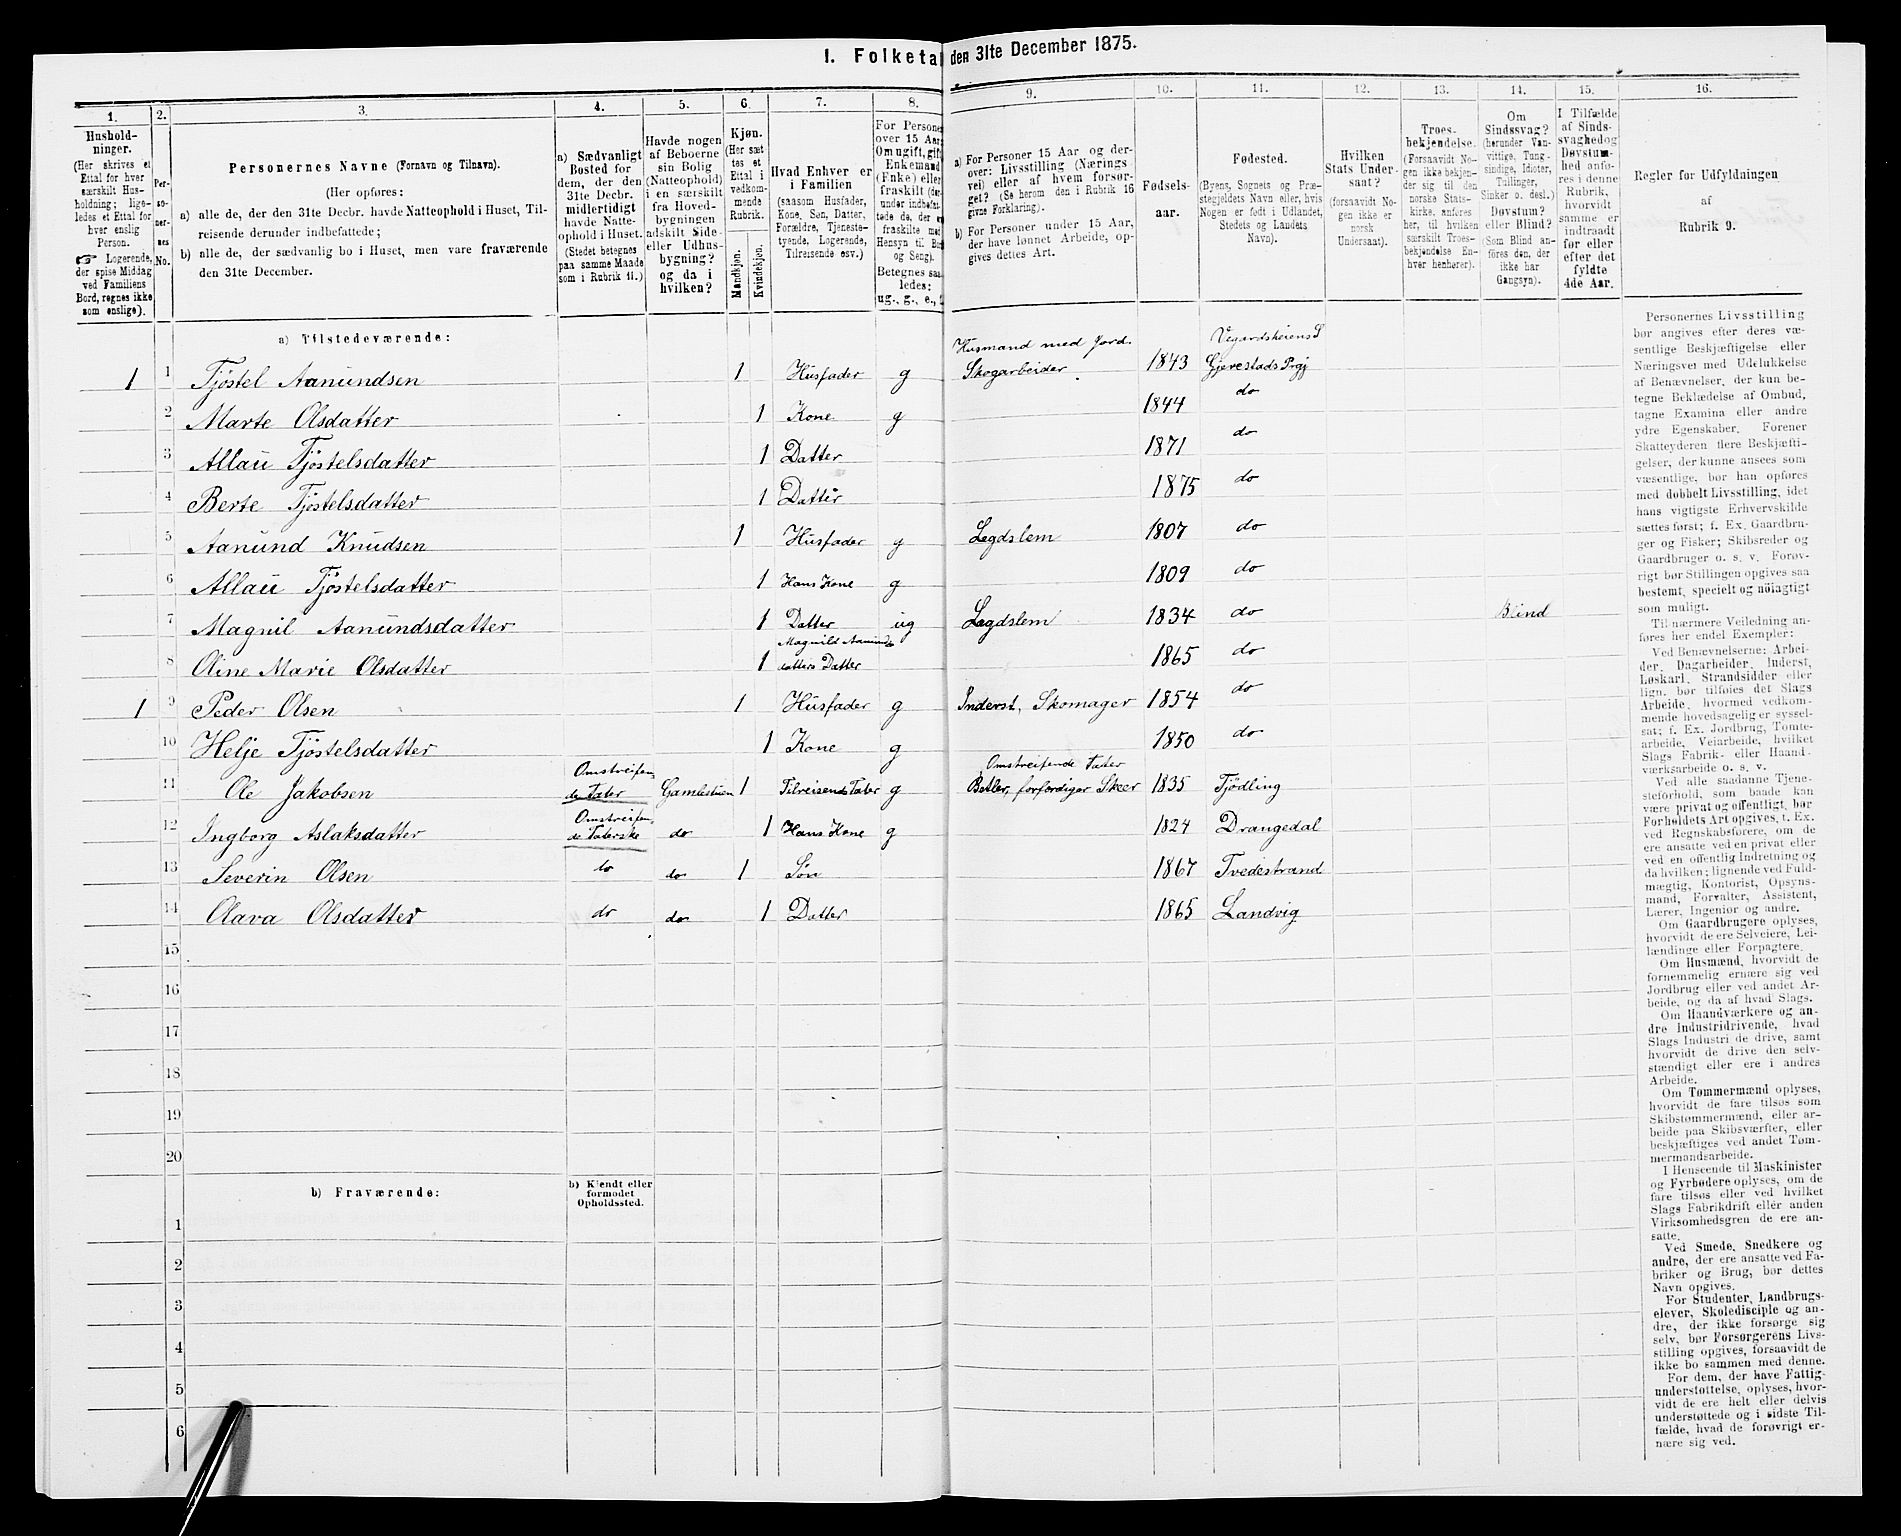 1. Folketa den 31te December 1875.
1. 2. 3. 4. 5. 6. 7. 8. 9. 10. 11. 12. 13. 14. 15. 16.
Hushold-
ninger.
(Her skrives et
Ettal for hver
særskilt Hus-
holdning; lige-
ledes et Ettal for
hver enslig
Person.
☞ Logerende,
der spise Middag
ved Familiens
Bord, regnes ikke
som enslige).
Per-
so-
ner-
nes
No.
Personernes Navne (Fornavn og Tilnavn).
(Her opføres:
a) alle de, der den 31te Decbr. havde Natteophold i Huset, Til-
reisende derunder indbefattede;
b) alle de, der sædvanlig bo i Huset, men vare fraværende
den 31te December.
a) Sædvanligt
Bosted for
dem, der den
31te Decbr.
midlertidigt
havde Natte-
ophold i Huset.
(Stedet betegnes
paa samme Maade
som i Rubrik 11.)
Havde nogen
af Beboerne
sin Bolig
(Natteophold)
i en særskilt
fra Hoved-
bygningen
adskilt Side-
eller Udhus-
bygning?
og da i
hvilken?
Kjøn.
(Her sæt-
tes et
Ettal i
vedkom-
mende
Rubrik.
Mandkjøn.
Kvindekjøn.
Hvad Enhver er
i Familien
(saasom Husfader,
Kone, Søn, Datter,
Forældre, Tjeneste-
tyende, Logerende,
Tilreisende osv.)
For Persone
over 15 Aar
Om ugift, gift
Enkemand
(Enke) eller
fraskilt (der-
under indbefat-
tede de, der e
fraskilte med
Hensyn til Bo
og Seng).
Betegnes saa-
ledes:
ug., g., e.,
a) For Personer 15 Aar og der-
over: Livsstilling (Nærings-
vei) eller af hvem forsør-
get? (Se herom den i Rubrik 16
givne Forklaring).
b) For Personer under 15 Aar,
der have lønnet Arbeide, op-
gives dettes Art.
Fødsels-
aar.
Fødested.
(Byens, Sognets og Præ-
stegjeldets Navn eller, hvis
Nogen er født i Udlandet,
Stedets og Landets
Navn).
Hvilken
Stats Under-
saat?
(forsaavidt No-
gen ikke er
norsk
Undersaat).
Troes-
bekjendelse.
(Forsaavidt No-
gen ikke bekjen-
der sig til den
norske Stats-
kirke, anføres
her, til hvilken
særskilt Troes-
bekjendelse En-
hver henhører).
Om
Sindssvag?
(herunder Van-
vittige, Tung-
sindige, Idioter,
Tullinger,
Sinker o. desl.)
Døvstum?
eller Blind?
(Som Blind an-
føres den, der
ikke har
Gangsyn).
I Tilfælde
af Sinds-
svaghed og
Døvstum-
hed anfø-
res i denne
Rubrik,
hvorvidt
samme er
indtraadt
før eller
efter det
fyldte
4de Aar.
Regler for Udfyldningen
af
Rubrik 9.
a) Tilstedeværende:
1 1 Tjøstel Aanundsen 1 Husfader g Husmand med Jord. Skogarbeider 1843 Vegardsheiens S Gjerestads Prgj
2 Marte Olsdatter 1 Kone g 1844 do
3 Allau Tjøstelsdatter 1 Datter 1871 do
4 Berte Tjøstelsdatter 1 Datter 1875 do
5 Aanund Knudsen 1 Husfader g Legdslem 1807 do
6 Allau Tjøstelsdatter 1 Hans Kone g 1809 do
7 Magnil Aanundsdatter 1 Datter ug Legdslem 1834 do Blind
8 Oline Marie Olsdatter 1 Magnild Aanunds datters Datter 1865 do
1 9 Peder Olsen 1 Husfader g Inderst, Skomager 1854 do
10 Helje Tjøstelsdatter 1 Kone g 1850 do
11 Ole Jakobsen Omstreifen de Tater Gamlestuen 1 Tilreisende Tater g Omstreifende Tater Betler, forfordiger Skeer 1835 Tjødling
12 Ingborg Aslaksdatter Omstreifen de Taterske do 1 Hans Kone g 1824 Drangedal
13 Severin Olsen do do 1 Søn 1867 Tvedestrand
14 Olava Olsdatter do do 1 Datter 1865 Landvig
15
16
17
18
19
20
b) Fraværende:
b) Kjendt eller
formodet
Opholdssted.
1
2
3
4
5
6
Personernes Livsstilling
bør angives efter deres væ-
sentlige Beskjæftigelse eller
Næringsvei med Udelukkelse
af Benævnelser, der kun be-
tegne Beklædelse af Ombud,
tagne Examina eller andre
ydre Egenskaber. Forener
Skatteyderen flere Beskjæfti-
gelser, der kunne ansees som
væsentlige, bør han opføres
med dobbelt Livsstilling, idet
hans vigtigste Erhvervskilde
sættes først; f. Ex. Gaardbru-
ger og Fisker; Skibsreder og
Gaardbruger o. s. v. Forøv-
rigt bør Stillingen opgives saa
bestemt, specielt og nøiagtigt
som muligt.
Til nærmere Veiledning an-
føres her endel Exempler:
Ved Benævnelserne: Arbei-
der, Dagarbeider, Inderst,
Løskarl, Strandsidder eller
lign. bør tilføies det Slags
Arbeide, hvormed vedkom-
mende hovedsagelig er syssel-
sat; f. Ex. Jordbrug, Tomte-
arbeide, Veiarbeide, hvilket
Slags Fabrik- eller Haand-
værksarbeide o. s. v.
Ved alle saadanne Tjene-
steforhold, som baade kan
være privat og offentligt, bør
Forholdets Art opgives, t. Ex.
ved Regnskabsførere, om de
ere ansatte ved en privat eller
ved en offentlig Indretning og
da hvilken; lignende ved Fuld-
mægtig, Kontorist, Opsyns-
mand, Forvalter, Assistent,
Lærer, Ingeniør og andre.
Om Gaardbrugere oplyses,
hvorvidt de ere Selveiere, Lei-
lændinge eller Forpagtere.
Om Husmænd, hvorvidt de
fornemmelig ernære sig ved
Jordbrug eller ved andet Ar-
beide, og da af hvad Slags.
Om Haandværkere og an-
dre Industridrivende, hvad
Slags Industri de drive, samt
hvorvidt de drive den selv-
stændigt eller ere i andres
Arbeide.
Om Tømmermænd oplyses,
hvorvidt de fare tilsøs som
Skibstømmermænd, eller ar-
beide paa Skibsværfter, eller
beskjæftiges ved andet Tøm-
mermandsarbeide.
I Henseende til Maskinister
og Fyrbødere oplyses, om de
fare tilsøs eller ved hvilket
Slags Fabrikdrift eller anden
Virksomhedsgren de ere an-
satte.
Ved Smede, Snedkere og
andre, der ere ansatte ved Fa-
briker og Brug, bør dettes
Navn opgives.
For Studenter, Landbrugs-
elever, Skoledisciple og an-
dre, der ikke forsørge sig
selv, bør Forsørgerens Livs-
stilling opgives, forsaavidt de
ikke bo sammen med denne.
For dem, der have Fattig-
understøttelse, oplyses, hvor-
vidt de ere helt eller delvis
understøttede og i sidste Til-
fælde, hvad de forøvrigt er-
nære sig ved.